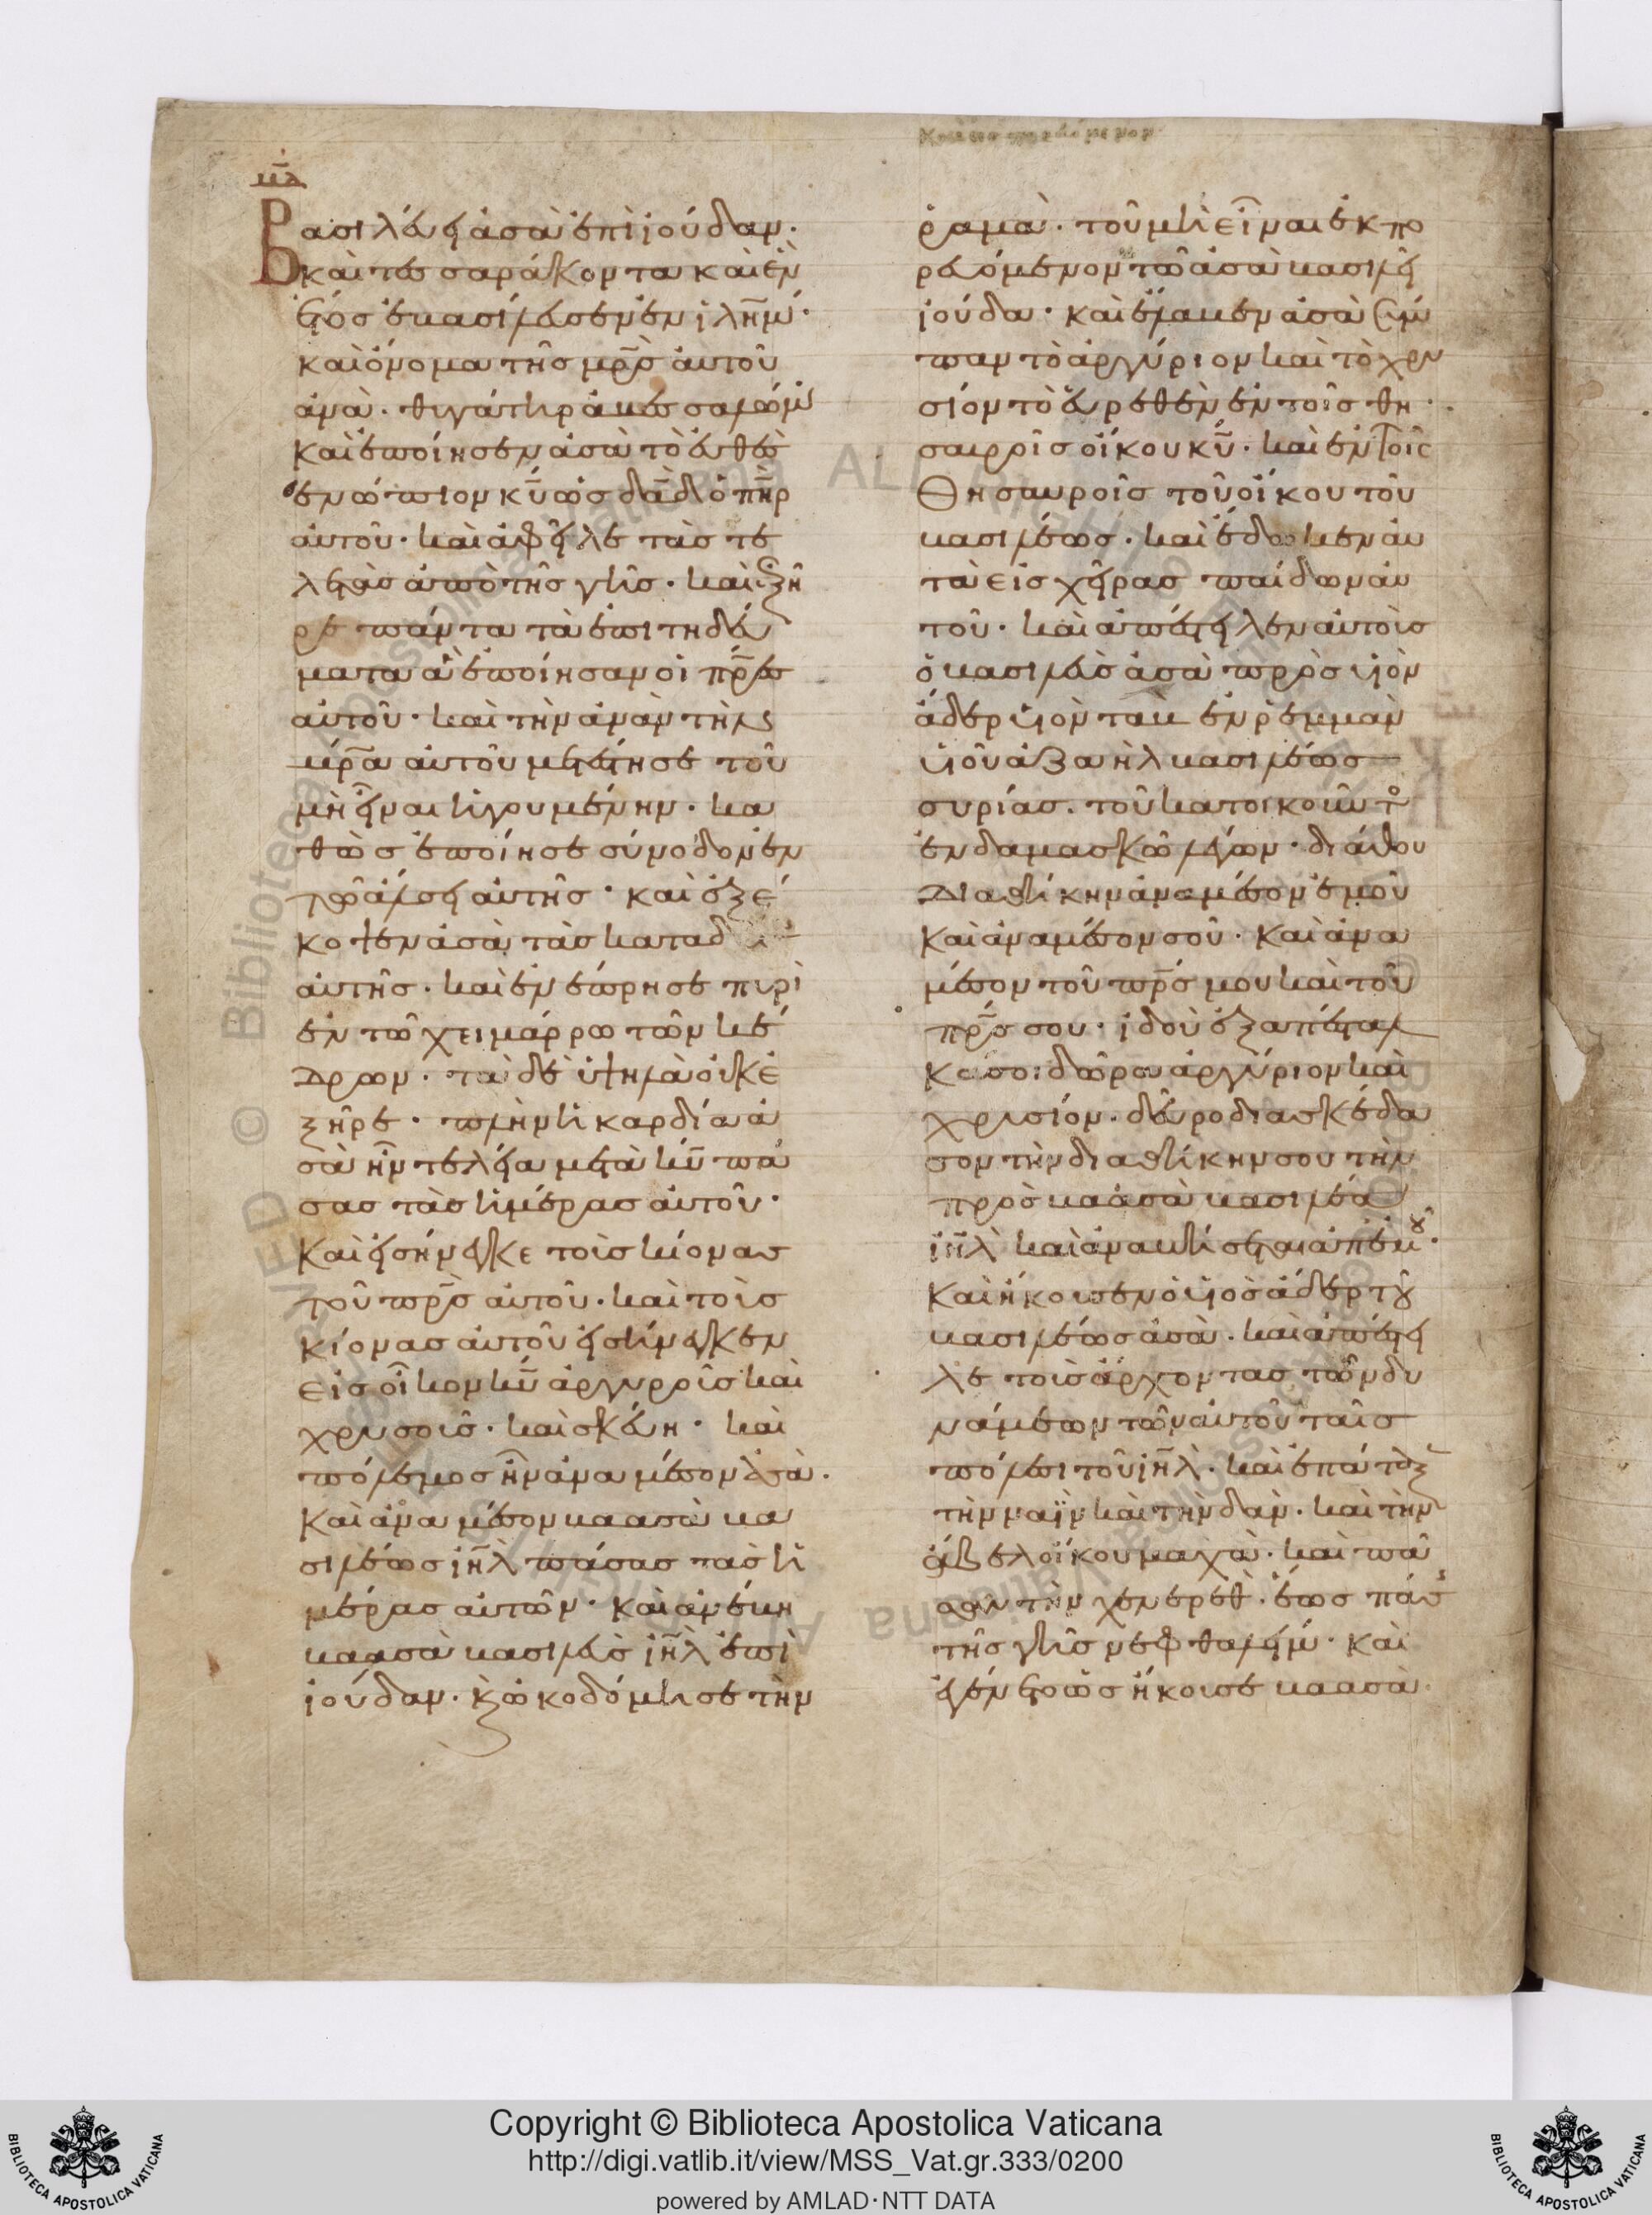 μα
Βασιλεύει ἀσὰ ἐπὶ ἰούδαν·
καὶ τεσσαράκοντα καὶ ἓν
ἔτος ἐβασίλευσεν ἐν ἰλη̅μ·
καὶ ὄνομα τῆς μρ̅ς αὐτοῦ
ἀνὰ· θυγάτηρ ἀβεσσαλώμ
καὶ ἐποίησεν ἀσὰ τὸ εὐθὲς
ἐνώπιον κυ̅ ὡς δα̅δ ὁ πη̅ρ
αὐτοῦ· καὶ ἀφεῖλε τὰς τε
λετὰς ἀπὸ τῆς γῆς· καὶ ἐξῆ
ρε πάντα τὰ ἐπιτηδεύ
ματα ἃ ἐποίησαν οἱ πρ̅ες
αὐτοῦ· καὶ τὴν ἀνὰν τὴν
μρ̅α αὐτοῦ μετέστησε τοῦ
μὴ εἶναι ἡγουμένην· κα
θὼς ἐποίησε σύνοδον ἐν
τῷ ἄλσει αὐτῆς· καὶ ἐξέ
κοψεν ἀσὰ τὰς καταδ
αὐτῆς· καὶ ἐνέπρησε πυρὶ
ἐν τῷ χειμάρρω τῶν κέ
δρων· τὰ δὲ ὑψηλὰ οὐκ ἐ
ξῆρε· πλὴν ἡ καρδία ἀ
σὰ ἦν τελεία μετὰ κυ̅ πά
σας τὰς ἡμέρας αὐτοῦ·
καὶ εἰσήνεγκε τοὺς κίονας
τοῦ πρ̅ς αὐτοῦ· καὶ τοὺς
κίονας αὐτοῦ εἰσήνεγκεν
εἰς οἶκον κυ̅ ἀργυροῦς καὶ
χρυσοῦς· καὶ σκεύη· καὶ
πόλεμος ἦν ἀνα μέσον ἀσὰ·
καὶ ἀνα μέσον βαασὰ βα
σιλέως ιη̅λ πάσας τὰς ἡ
μέρας αὐτῶν· καὶ ἀνέβη
βαασὰ βασιλεὺς ιη̅λ ἐπὶ
ἰούδαν· κὶ ὠκοδόμησε τὴν
ῥαμὰ· τοῦ μὴ εἶναι ἐκπο
ρευόμενον τῷ ἀσὰ βασιλεῖ
ἰούδα· καὶ ἔλαβεν ἀσὰ σύμ
παν τὸ ἀργύριον καὶ τὸ χρυ
σίον τὸ εὑρεθὲν ἐν τοῖς θη
σαυροῖς οἴκου κυ̅· καὶ ἐν τοῖς
Θησαυροῖς τοῦ οἴκου τοῦ
βασιλέως· καὶ ἔδωκεν αὐ
τὰ εἰς χεῖρας παίδων αὐ
τοῦ· καὶ ἀπέστειλεν αὐτοὺς
ὁ βασιλεὺς ἀσὰ πρὸς υἱὸν
ἄδερ υἱὸν ταβ ἐνρεμμὰν
υἱοῦ ἀζαὴλ βασιλέως
συρίας· τοῦ κατοικοῦντο
ἐν δαμασκῷ λέγων· διάθου
Διαθήκην ἀναμέσον ἐμοῦ
καὶ ἀναμέσον σοῦ· καὶ ἀνα
μέσον τοῦ πρ̅ς μου καὶ τοῦ
πρ̅ς σου· ἰδοὺ ἐξαπέσταλ
κά σοι δῶρα ἀργύριον καὶ
χρυσίον· δεῦρο διασκέδα
σον τὴν διαθήκην σου τὴν
πρὸς βαασὰ βασιλέα
ιη̅λ καὶ ἀναβήσεται ἀπ ἐμοῦ·
καὶ ἤκουσεν ὁ υἱὸς ἄδερ τοῦ
βασιλέως ἀσὰ· καὶ ἀπέστει
λε τοὺς ἄρχοντας τῶν δυ
νάμεων τῶν αὐτοῦ ταῖς
πόλεσι τοῦ ιη̅λ· καὶ ἐπάταξ
τὴν ναῒν καὶ τὴν δὰν· καὶ τὴν
ἀβελ οἴκου μαχὰ· καὶ πᾶ
σαν τὴν χενερὲθ· ἕως πάσ
τῆς γῆς νεφθαλείμ· καὶ
ἐγένετο ὡς ἤκουσε βαασὰ·